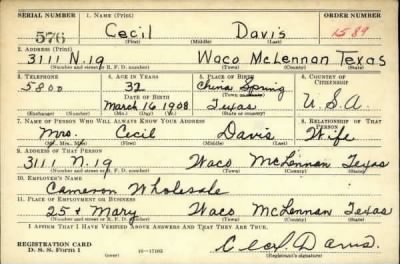 SERIAL NUMBER 1. NAME (Print) ORDER NUMBER
576 Cecil Davis 1589
(First) (Middle) (Last)
2. ADDRESS (Print)
3111 N. 19 Waco McLennan Texas
(Number and street or R. F. D. number) (Town) (County) (State)
3. TELEPHONE 4. AGE IN YEARS 5. PLACE OF BIRTH 6. COUNTRY OF CITIZENSHIP
5800 32 China Spring
DATE OF BIRTH (Town or county)
March 16 1908 Texas U.S.A.
(Mo.) (Day) (Yr.) (State or country)
7. NAME OF PERSON WHO WILL ALWAYS KNOW YOUR ADDRESS 8. RELATIONSHIP OF THAT PERSON
Mrs. Cecil Davis Wife
(Mr., Mrs., Miss) (First) (Middle) (Last)
9. ADDRESS OF THAT PERSON
3111 N. 19 Waco McLennan Texas
(Number and street or R. F. D. number) (Town) (County) (State)
10. EMPLOYER'S NAME
Cameron Wholesale
11. PLACE OF EMPLOYMENT OR BUSINESS
25 & Mary Waco McLennan Texas
(Number and street or R. F. D. number) (Town) (County) (State)
I AFFIRM THAT I HAVE VERIFIED ABOVE ANSWERS AND THAT THEY ARE TRUE.
REGISTRATION CARD
D. S. S. Form 1 16—17105 Cecil Davis
(Registrant's signature)